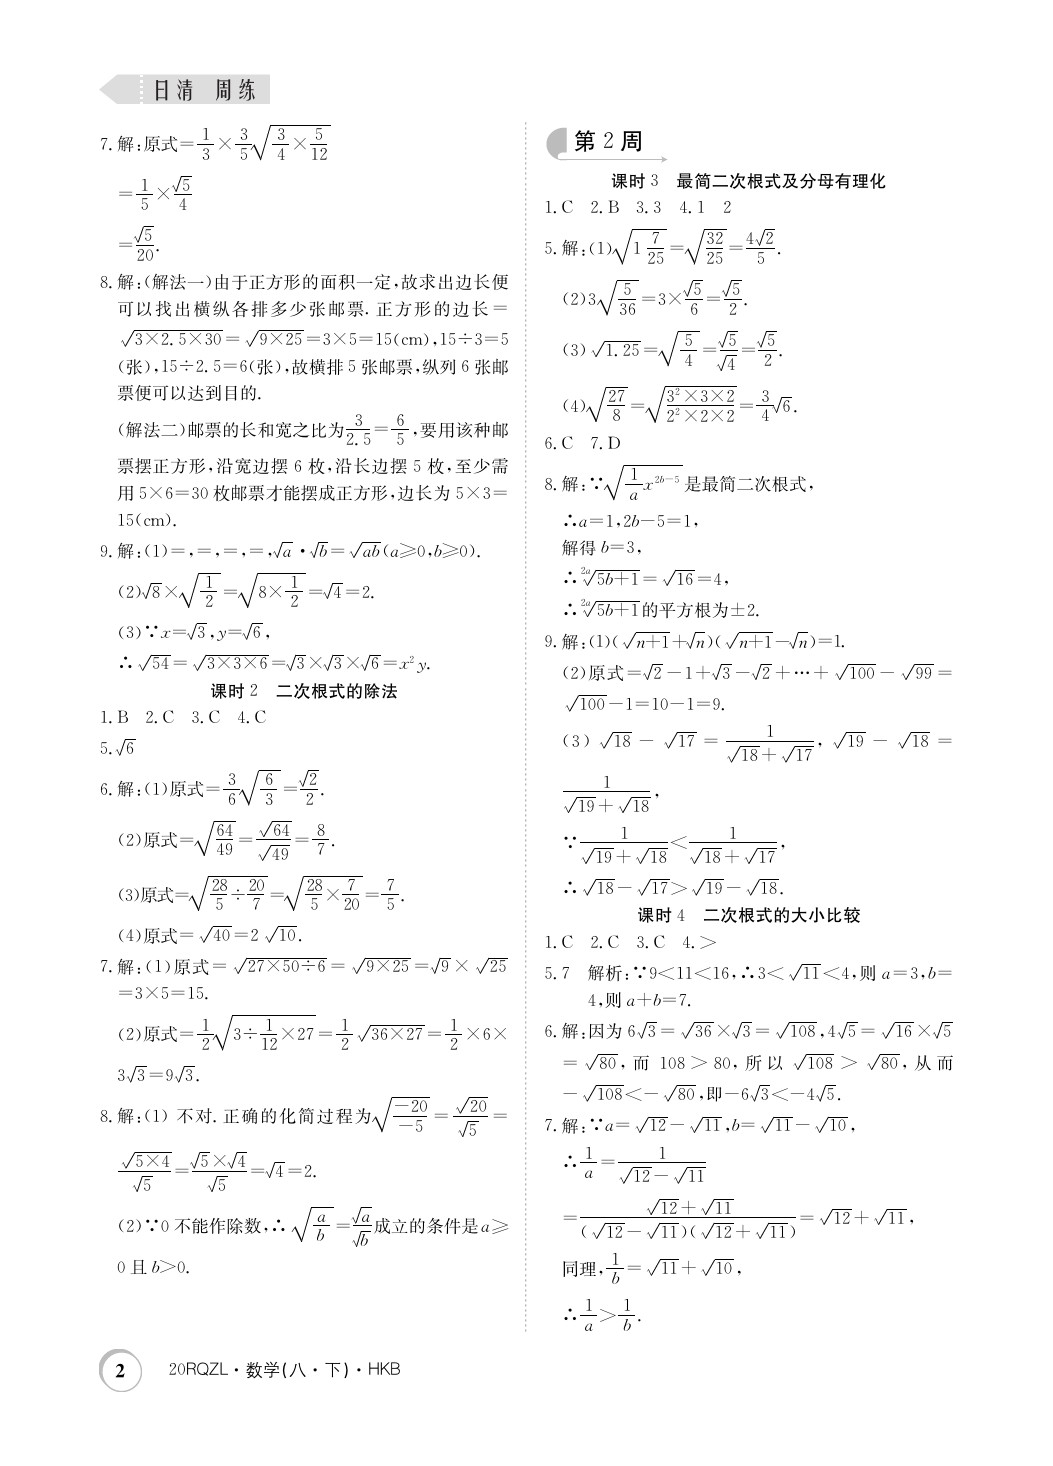 日清 周练
7. 解:原式=1/3×3/5√(3/4×5/12)
=1/5×√5/4
=√5/20.
8. 解:(解法一)由于正方形的面积一定,故求出边长便
可以找出横纵各排多少张邮票. 正方形的边长=
√(3×2.5×30)=√(9×25)=3×5=15(cm),15÷3=5
(张),15÷2.5=6(张),故横排 5 张邮票,纵列 6 张邮
票便可以达到目的.
(解法二)邮票的长和宽之比为3/2.5=6/5,要用该种邮
票摆正方形,沿宽边摆 6 枚,沿长边摆 5 枚,至少需
用 5×6=30 枚邮票才能摆成正方形,边长为 5×3=
15(cm).
9. 解:(1)=,=,=,=,√a·√b=√(ab)(a≥0,b≥0).
(2)√8×√(1/2)=√(8×1/2)=√4=2.
(3)∵x=√3,y=√6,
∴√54=√(3×3×6)=√3×√3×√6=x²y.
课时 2 二次根式的除法
1. B 2. C 3. C 4. C
5. √6
6. 解:(1)原式=3/6√(6/3)=√2/2.
(2)原式=√(64/49)=√64/√49=8/7.
(3)原式=√(28/5÷20/7)=√(28/5×7/20)=7/5.
(4)原式=√40=2√10.
7. 解:(1)原式=√(27×50÷6)=√(9×25)=√9×√25
=3×5=15.
(2)原式=1/2√(3÷1/12×27)=1/2√(36×27)=1/2×6×
3√3=9√3.
8. 解:(1) 不对. 正确的化简过程为√(-20/-5)=√20/√5=
√(5×4)/√5=√5×√4/√5=√4=2.
(2)∵0 不能作除数,∴√(a/b)=√a/√b成立的条件是 a≥
0 且 b>0.
第 2 周
课时 3 最简二次根式及分母有理化
1. C 2. B 3. 3 4. 1 2
5. 解:(1)√(1 7/25)=√(32/25)=4√2/5.
(2)3√(5/36)=3×√5/6=√5/2.
(3)√1.25=√(5/4)=√5/√4=√5/2.
(4)√(27/8)=√(3²×3×2/2²×2×2)=3/4√6.
6. C 7. D
8. 解:∵√(1/a x^(2b-5))是最简二次根式,
∴a=1,2b-5=1,
解得 b=3,
∴^(2a)√(5b+1)=√16=4,
∴^(2a)√(5b+1)的平方根为±2.
9. 解:(1)(√(n+1)+√n)(√(n+1)-√n)=1.
(2)原式=√2-1+√3-√2+…+√100-√99=
√100-1=10-1=9.
(3)√18-√17=1/(√18+√17),√19-√18=
1/(√19+√18),
∵1/(√19+√18)<1/(√18+√17),
∴√18-√17>√19-√18.
课时 4 二次根式的大小比较
1. C 2. C 3. C 4. >
5. 7 解析:∵9<11<16,∴3<√11<4,则 a=3,b=
4,则 a+b=7.
6. 解:因为 6√3=√36×√3=√108,4√5=√16×√5
=√80,而 108>80,所以 √108>√80,从而
-√108<-√80,即-6√3<-4√5.
7. 解:∵a=√12-√11,b=√11-√10,
∴1/a=1/(√12-√11)
=(√12+√11)/((√12-√11)(√12+√11))=√12+√11,
同理,1/b=√11+√10,
∴1/a>1/b.
2 20RQZL·数学(八·下)·HKB